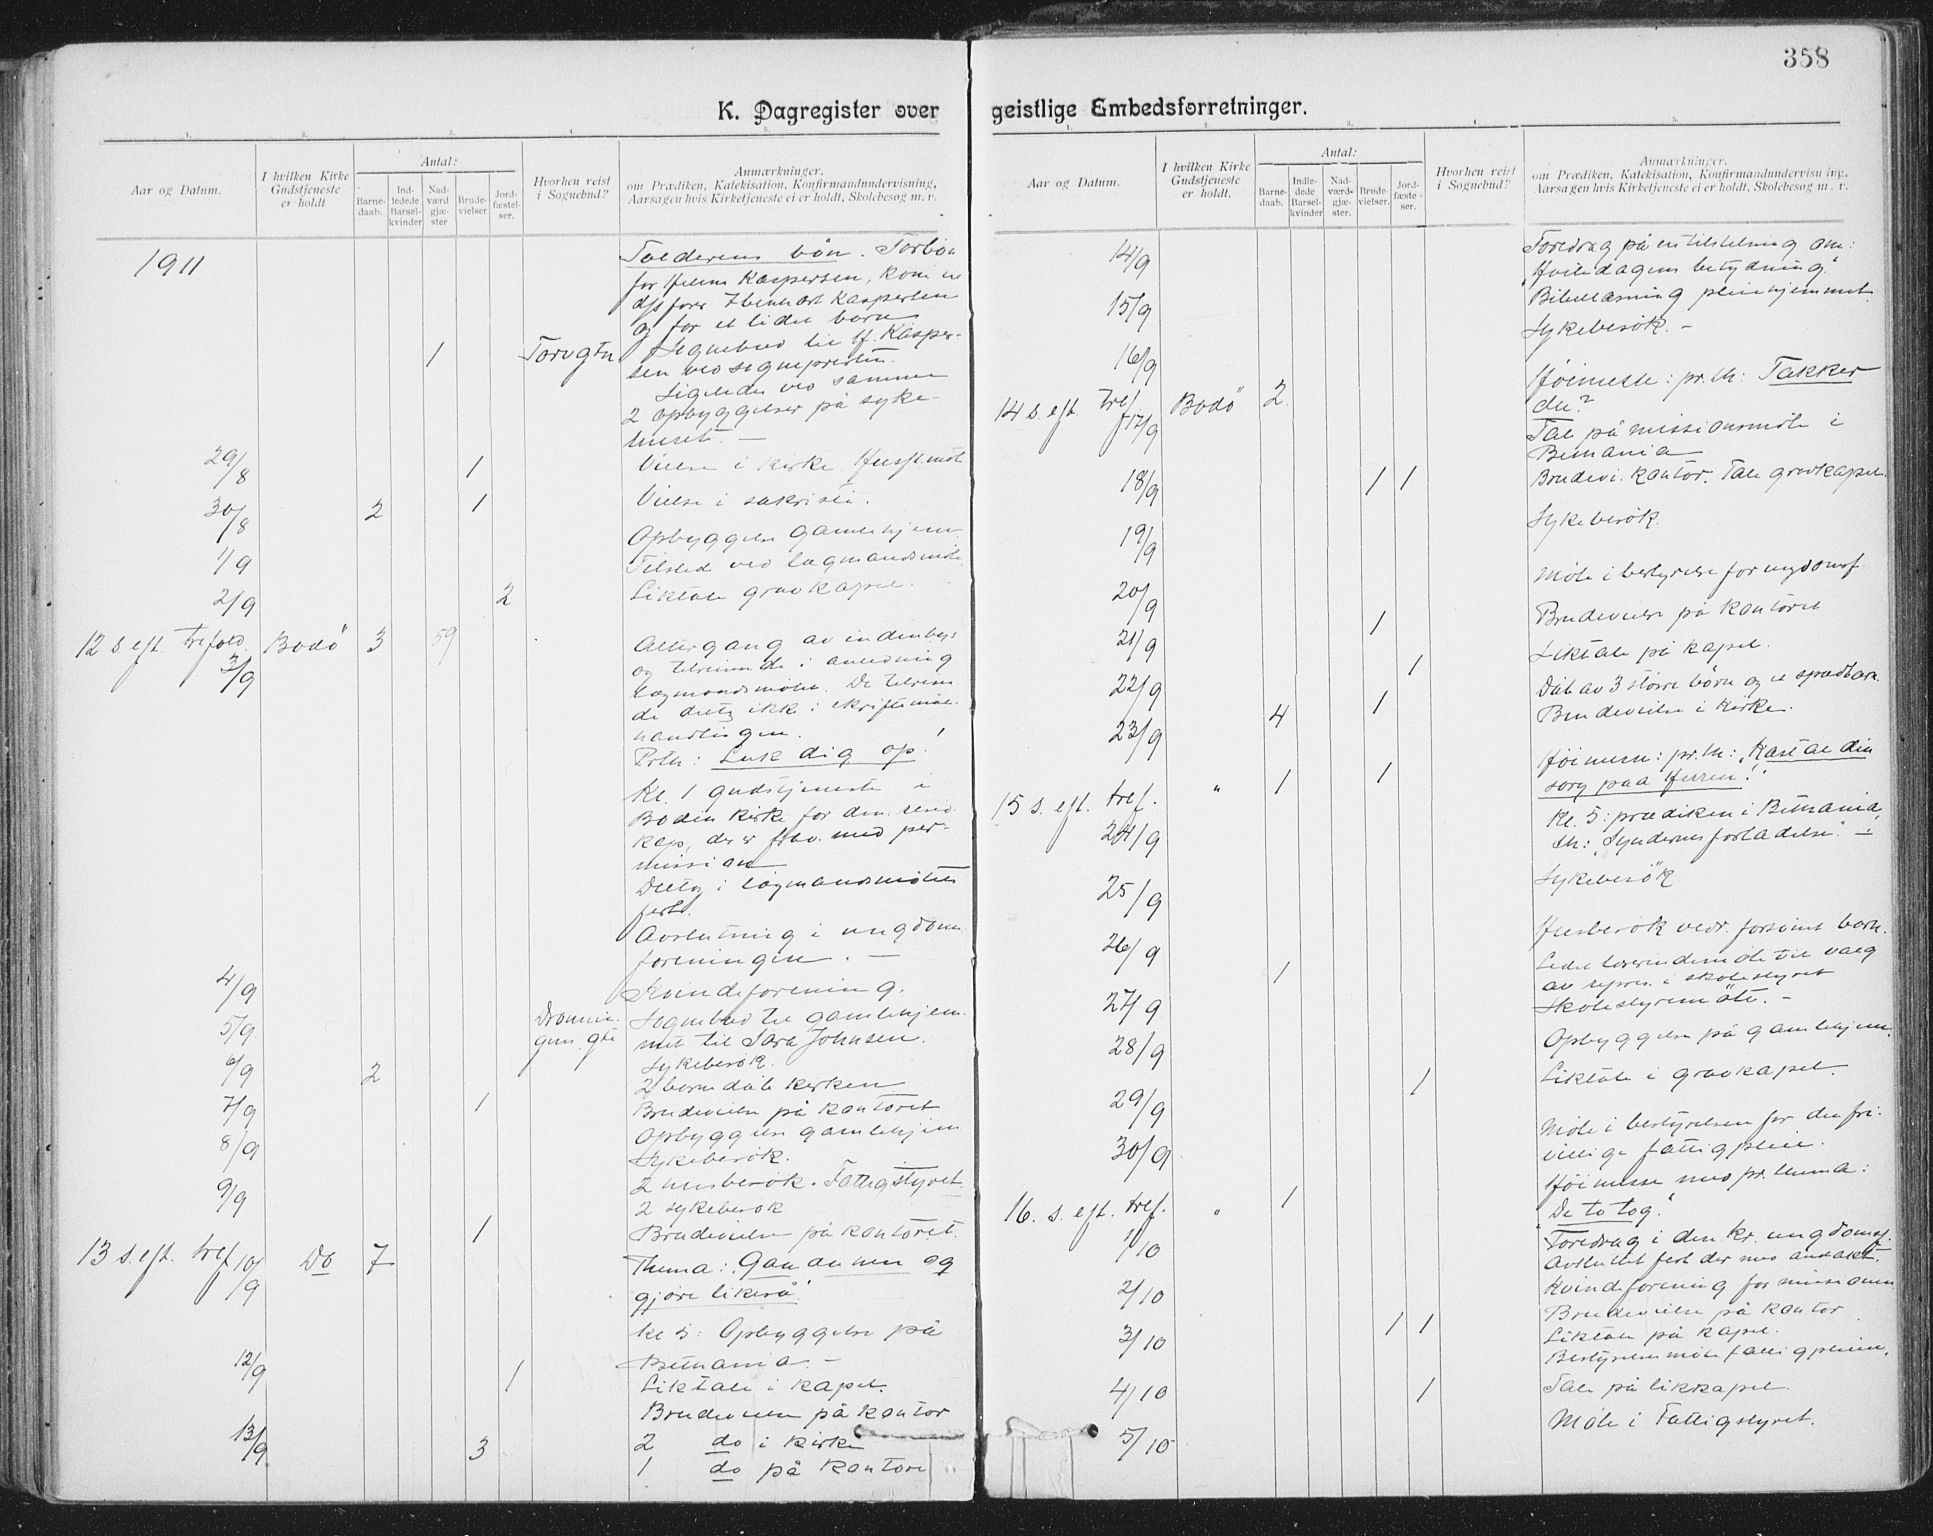 358
K. Dagregister over geistlige Embedsforretninger.
1. 2. 3. 4. 5.
Aar og Datum.
I hvilken Kirke Gudstjeneste er holdt
Antal:
Barnedaab.
Indledede Barselkvinder
Nadværdgjæster
Brudevielser
Jordfæstelser.
Hvorhen reist i Sognebud?
Anmærkninger.
om Prædiken, Katekisation, Konfirmandundervisning,
Aarsagen hvis Kirketjeneste ei er holdt, Skolebesøg m. v.
1911
Tolderens bön. Forbön
for Kaspersen, kom
Kaspersen
og for et lidet barn
1 Torvgtn Sognebud til Kasper-
sen ved sogneprästen.
Ligeledes ved samme
2 opbyggelser på syke-
huset. —
29/8 1 Vielse i kirke.
30/8 2 1 Vielse i sakristi.
1/9 Opbyggelse gamlehjem
Tilsted ved lægmandsmöte
2/9 2 Liktale gravkapel.
12 s eft. trefold. 3/9 Bodö 3 59 Altergang av indenbys
og tilreisende i anledning
lægmandsmötet. De tilreisen
de deltog ikke i skriftemaals
handlingen.
Prth: Luk dig op!
Kl. 1 gudstjeneste i
Bodin kirke for den resid.
kap., der er med per-
mission
Deltog i lægmandsmötets
fest.
Avslutning i ungdoms
foreningen. —
4/9 Kvindeforening.
5/9 Dronnin-
gens gte Sognebud til gamlehjem-
met til Sara Johnsen.
6/9 Sykebesök.
2 2 barnedåb kirken
7/9 1 Brudevielse på kontoret
8/9 Opbyggelse gamlehjem
Sykebesök.
9/9 2 husbesök. Fattigstyret
2 sykebesök
1 Brudevielse på kontoret.
13 s. eft. tref. 10/9 Do 7 Thema: "Gaa du hen og
gjöre likeså"
kl 5: Opbyggelse på
Betania. —
12/9 1 Liktale i kapel.
Brudevielse på kontor
13/9 3 2 do i kirke
1 do på kontoret
1. 2. 3. 4. 5.
Aar og Datum.
I hvilken Kirke Gudstjeneste er holdt.
Antal:
Barnedaab.
Indledede Barselkvinder
Nadværdgjæster.
Brudevielser.
Jordfæstelser.
Hvorhen reist i Sognebud?
Anmærkninger.
om Prædiken, Katekisation, Konfirmandundervisning,
Aarsagen hvis Kirketjeneste ei er holdt, Skolebesøg m. v.
14/9 Foredrag på en tilstelning om:
"Hviledagens betydning."
15/9 Bibellæsning pleiehjemmet.
Sykebesök. —
16/9
14 s. eft. tref. 17/9 Bodö 2 Höimesse: pr. th: Takker
du?
Tale på missionsmöte i
Betania
18/9 1 1 Brudevi. kontor. Tale gravkapel.
19/9 Sykebesök.
20/9 Möte i bestyrelse for ungdomsf.
21/9 1 Brudevielse på kontoret
22/9 1 Liktale på kapel.
23/9 4 1 Dåb av 3 större börn og et spædbarn.
Brudevielse i kirke.
15 s. eft. tref. 24/9 " 1 1 Höimesse: pr. th: "Kast al din
sorg paa Herren!"
Kl. 5: prædiken i Betania,
th: "Syndernes forladelse". —
25/9 Sykebesök
26/9 Husbesök vedr. forsömt barn.
27/9 1 Ledet lærerindemöte til valg
av repres. i skolestyret
Skolestyremöte. —
28/9 Opbyggelse på gamlehjem.
29/9 1 Liktale i gravkapel.
30/9 Möte i bestyrelsen for den fri-
villige fattigpleie.
16. s. eft. tref. 1/10 " 1 Höimesse med pr. thema:
"De to tog."
Foredrag i den kr. ungdomsf.
Avsluttet fest der med andakt.
2/10 Kvindeforening for missionen
3/10 1 1 Brudevielse på kontor
Liktale på kapel.
Bestyrelsesmöte fattigpleien.
4/10 1 Tale på likkapel.
5/10 Möte i Fattigstyret.